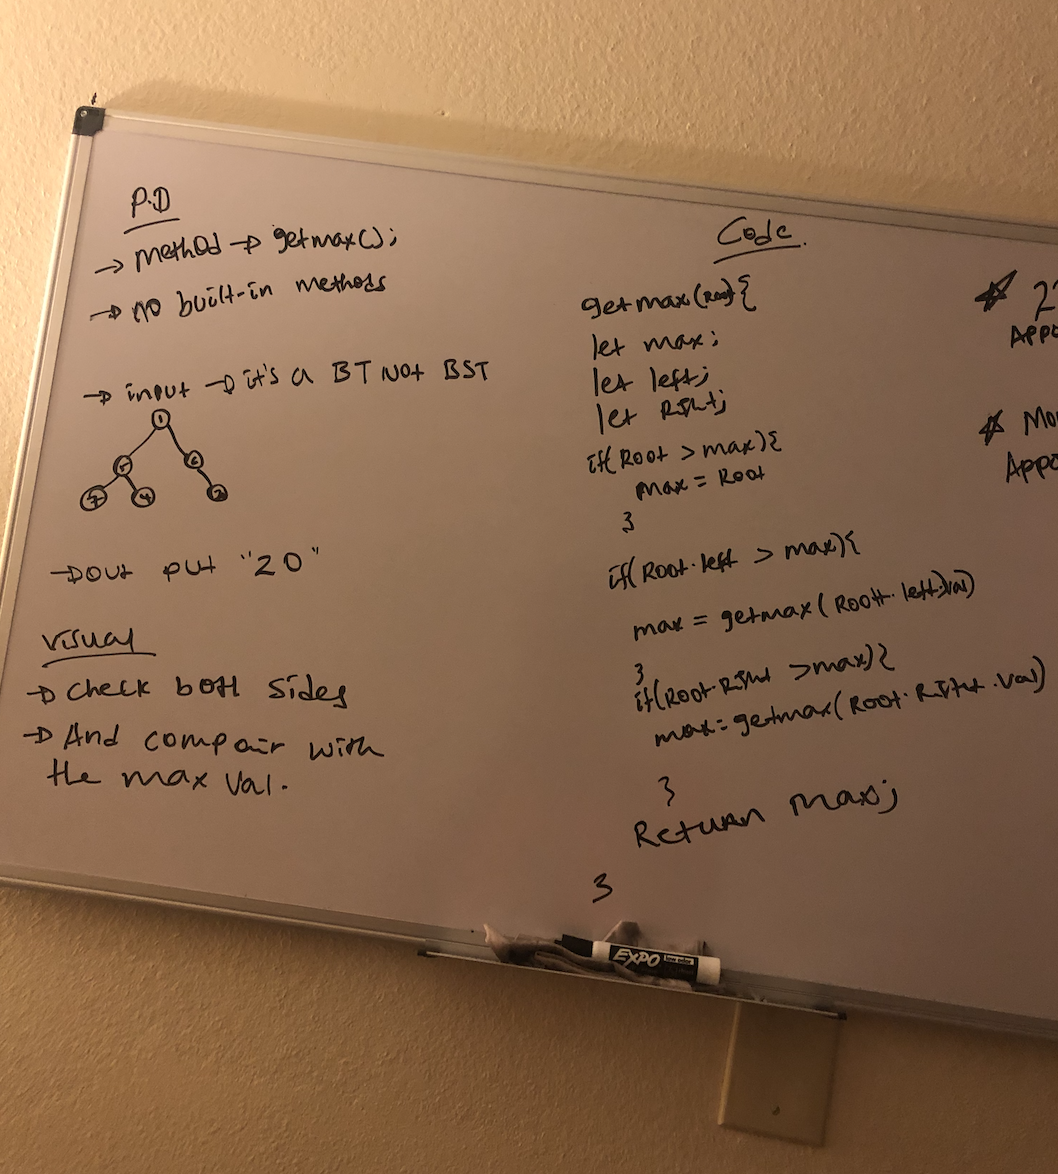 P.D
→ method → getmax();
→ no built-in methods
→ input → it's a BT Not BST
1
5 6
7 4 2
→ out put "20"
Visual
→ check both sides
→ And compair with
the max val.
Code.
getmax(Root){
let max;
let left;
let Right;
if(Root > max){
max = Root
}
if(Root.left > max){
max = getmax(Root.left.val)
}
if(Root.Right > max){
max = getmax(Root.Right.val)
}
Return max;
}
EXPO
App
Mo
App